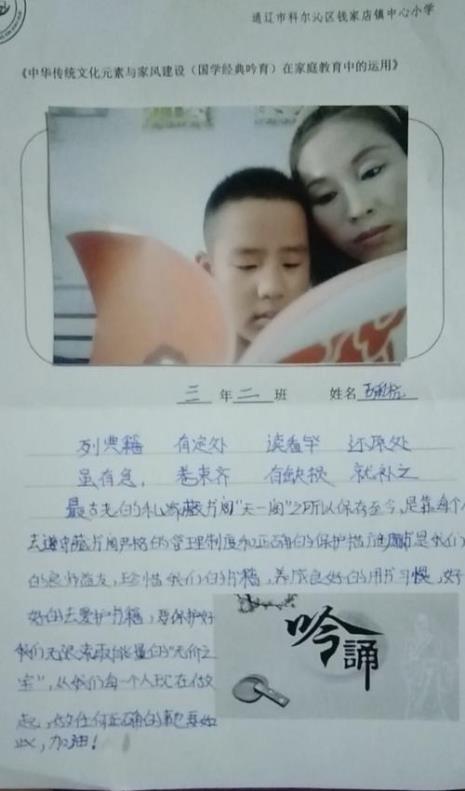 通辽市科尔沁区钱家店镇中心小学
《中华传统文化元素与家风建设（国学经典吟育）在家庭教育中的运用》
三 年 二 班 姓名
列典籍 有定处 读看毕 还原处
虽有急， 卷束齐 有缺损 就补之
最古老的私家藏书阁"天一阁"之所以保存至今，是靠每个人
去遵守藏书阁严格的管理制度和正确的保护措施，书是我们
的良师益友，珍惜我们的书籍，养成良好的用书习惯，好
好的去爱护书籍，要保护好
我们无限索取能量的"无价之
宝"，从我们每一个人现在做
起，做任何正确的都要如
此，加油！
吟誦